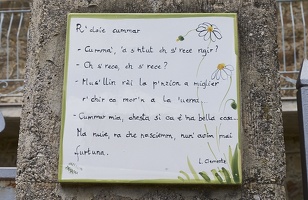 R' doie cummar
- Cumma', 'o s'ntut ch s'rece ngir?
- Ch s'rece, ch s'rece?
- Mus'llin rài la p'nzion a miglier
r'chir ca mor'n a la 'uerra.
- Cummar mia, chesta si ca è 'na bella cosa...
Ma nuie, ra che nasciemm, nun' avim mai
furtuna.
L. Clemente